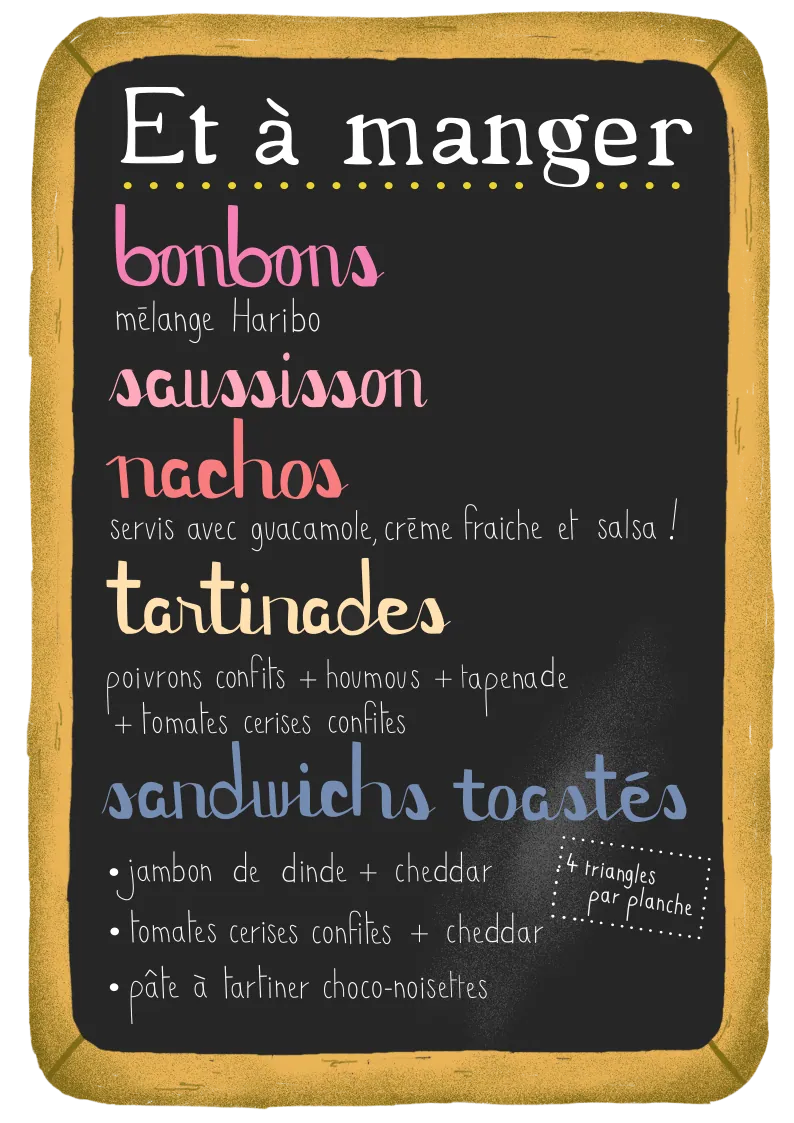 Et à manger
bonbons
mēlange Haribo
saussisson
nachos
servis avec guacamole, crēme fraiche et salsa !
tartinades
poivrons confits + houmous + tapenade
+ tomates cerises confites
sandwichs toastés
• jambon de dinde + cheddar
4 triangles
par planche
• tomates cerises confites + cheddar
• pâte à tartiner choco-noisettes